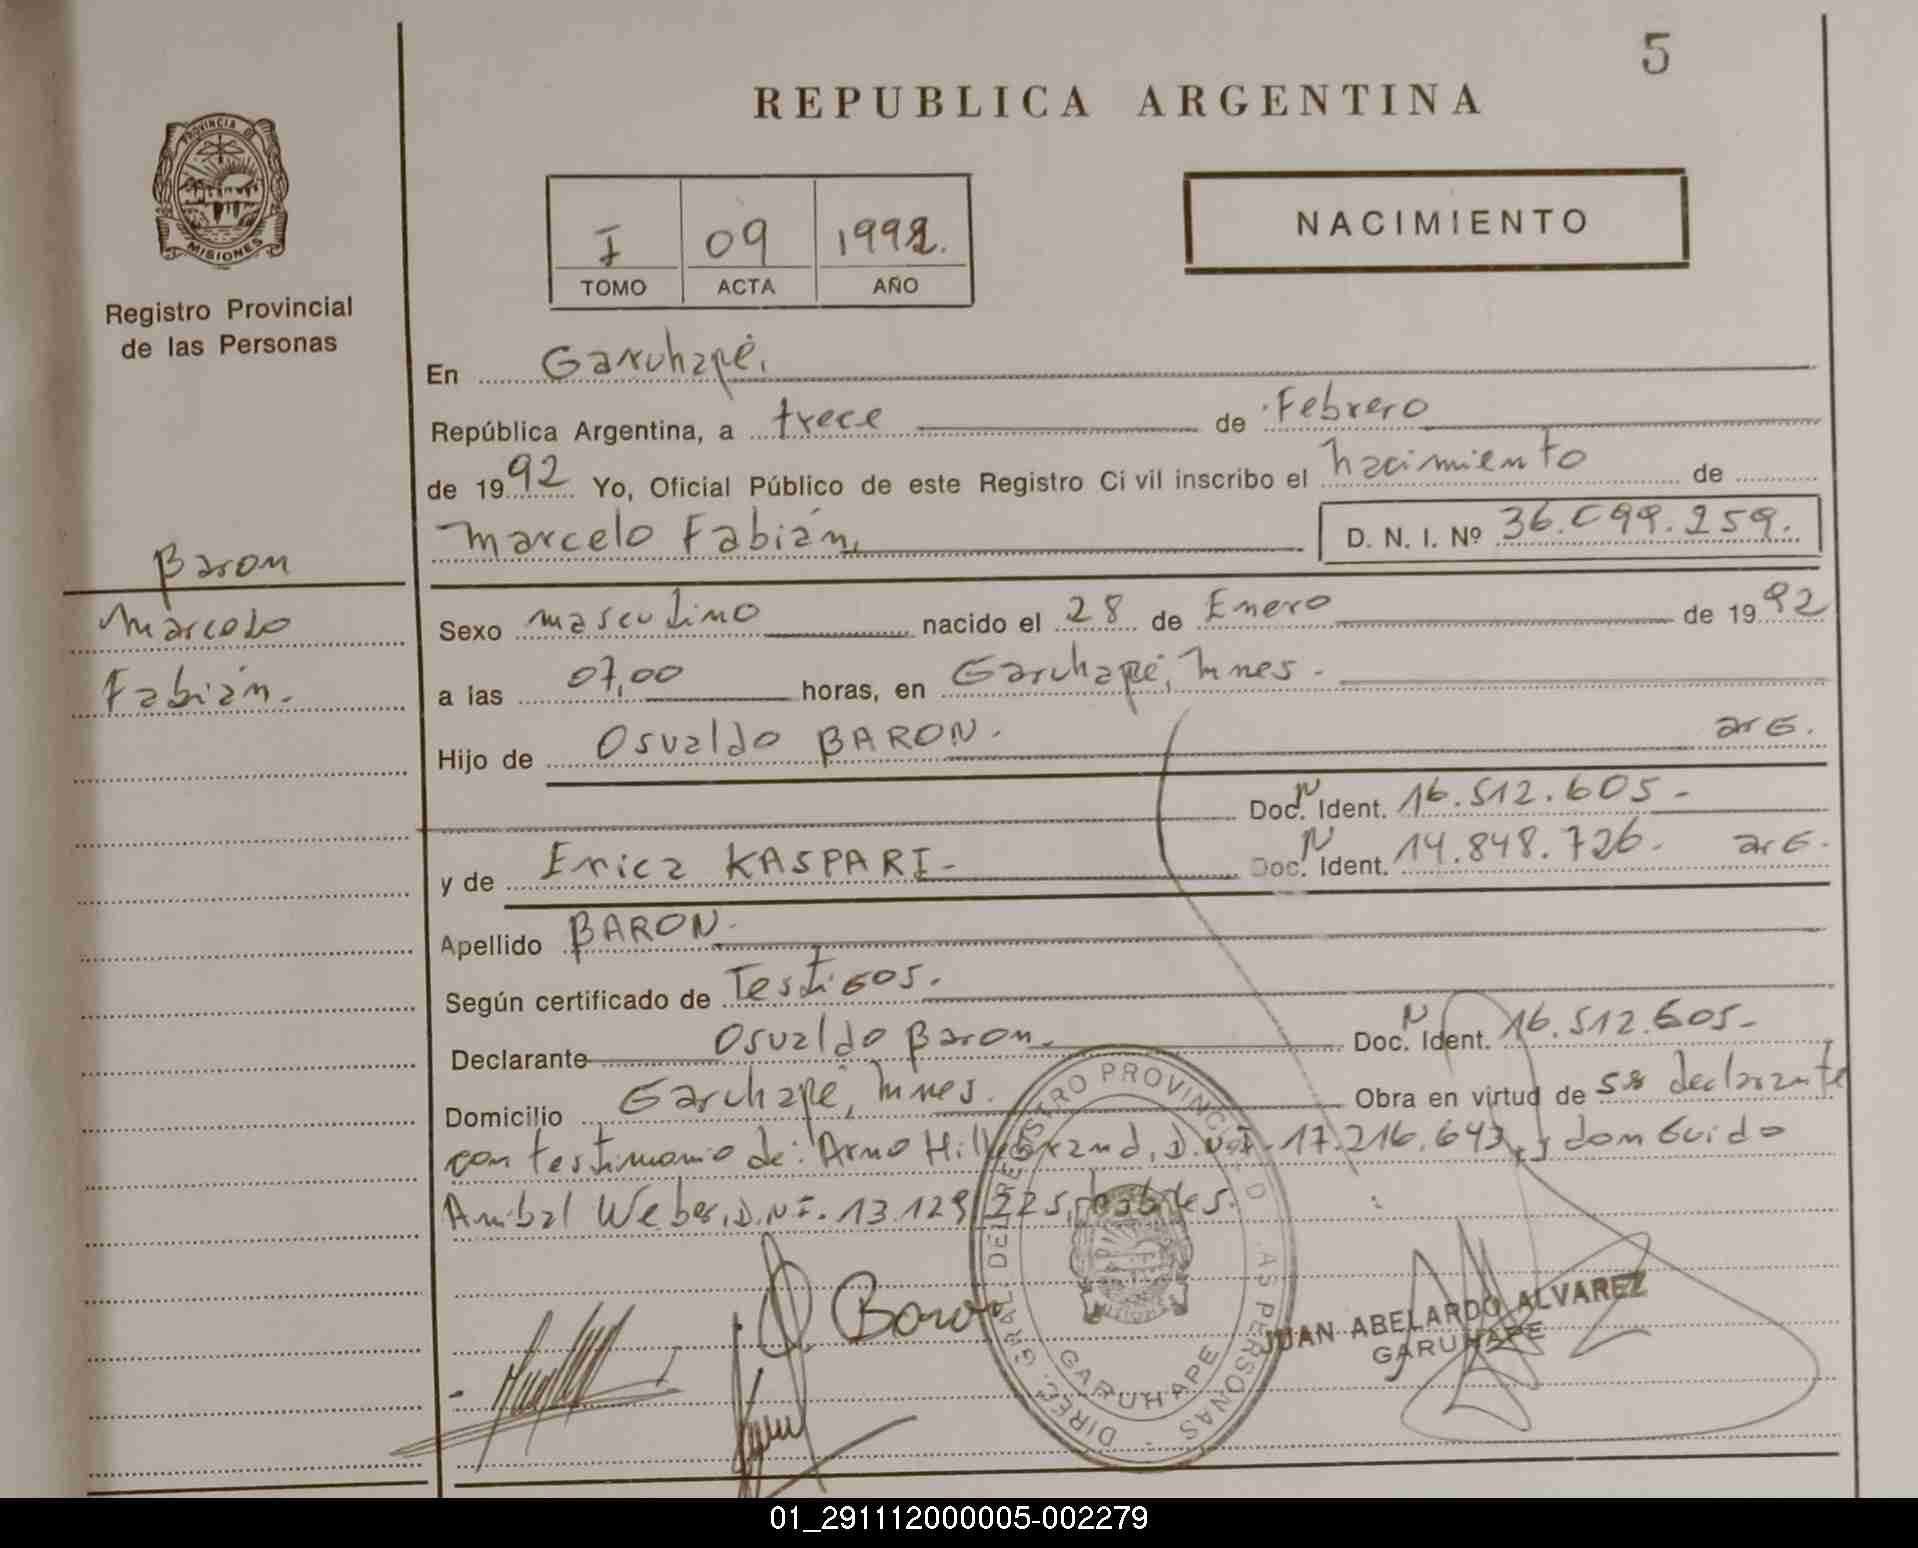 5
REPUBLICA ARGENTINA
PROVINCIA DE
MISIONES
Registro Provincial
de las Personas
I 09 1992.
TOMO ACTA AÑO
NACIMIENTO
En Garuhapé,
República Argentina, a trece de Febrero
de 1992 Yo, Oficial Público de este Registro Ci vil inscribo el nacimiento de
Marcelo Fabián, D. N. I. Nº 36.099.259.
Baron
Marcelo
Fabián.
Sexo masculino nacido el 28 de Enero de 1992
a las 07,00 horas, en Garuhapé, Mnes.
Hijo de Osvaldo BARON. arG.
Doc. N Ident. 16.512.605.-
y de Erica KASPARI- Doc. N Ident. 14.848.726. arG.
Apellido BARON.
Según certificado de Testigos.
Declarante Osvaldo Baron. Doc. N Ident. 16.512.605.-
Domicilio Garuhapé, Mnes. Obra en virtud de ser declarante
con testimonio de: Arno Hillebrand, D.N.I. 17.216.643, y don Guido
Anibal Weber, D.N.I. 13.129.225, habiles.
O. Baron
DIREC. GRAL. DEL REGISTRO PROVINCIAL D LAS PERSONAS
GARUHAPE
JUAN ABELARDO ALVAREZ
GARUHAPE
01_291112000005-002279